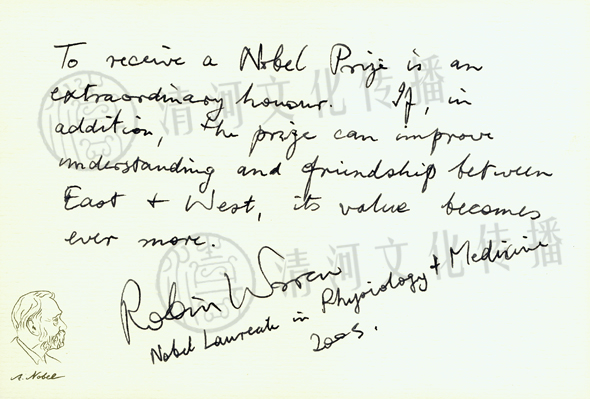 To receive a Nobel Prize is an
extraordinary honour. If, in
addition, the prize can improve
understanding and friendship between
East + West, its value becomes
ever more.
Robin Warren
Nobel Laureate in Physiology + Medicine
2005.
A. Nobel
清河文化传播
清河文化传播